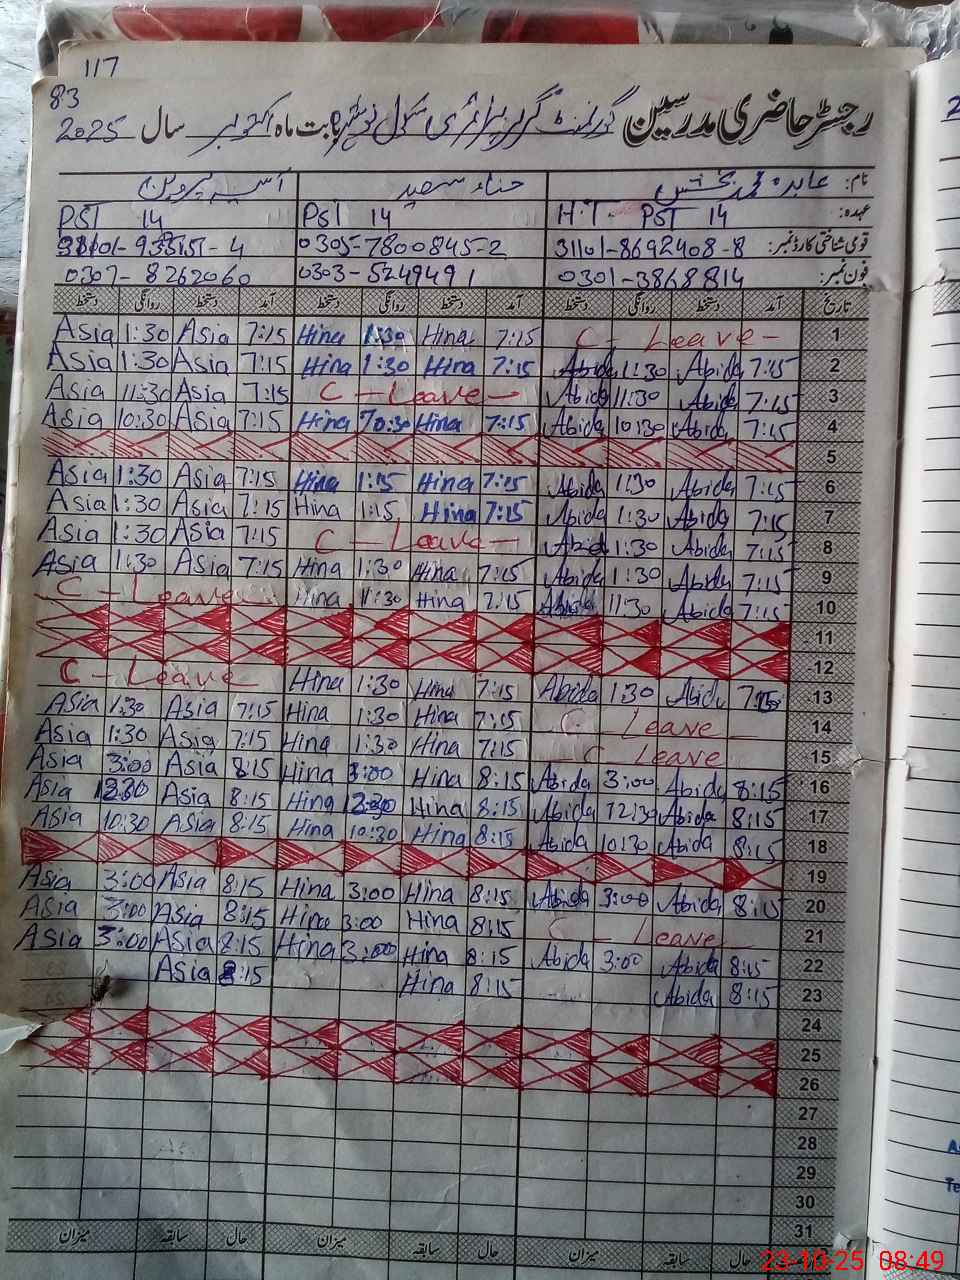 117
83
رجسٹر حاضری مدرسین گورنمنٹ گرلز پرائمری سکول بابت ماہ اکتوبر سال 2025
نام: عابدہ محمد بخش حناء سعید آسیہ پروین
عہدہ: H.T. PST 14 PST 14 PST 14
قومی شناختی کارڈ نمبر: 31101-8692408-8 0305-7800845-2
فون نمبر: 0301-3868814 0303-5249491 0307-8262060
تاریخ آمد دستخط روانگی دستخط آمد دستخط روانگی دستخط آمد دستخط روانگی دستخط
Asia 1:30 Asia 7:15 Hina 1:30 Hina 7:15 C - Leave - 1
Asia 1:30 Asia 7:15 Hina 1:30 Hina 7:15 Abida 1:30 Abida 7:15 2
Asia 11:30 Asia 7:15 C - Leave - Abida 11:30 Abida 7:15 3
Asia 10:30 Asia 7:15 Hina 10:30 Hina 7:15 Abida 10:30 Abida 7:15 4
5
Asia 1:30 Asia 7:15 Hina 1:15 Hina 7:15 Abida 1:30 Abida 7:15 6
Asia 1:30 Asia 7:15 Hina 1:15 Hina 7:15 Abida 1:30 Abida 7:15 7
Asia 1:30 Asia 7:15 C - Leave - Abida 1:30 Abida 7:15 8
Asia 1:30 Asia 7:15 Hina 1:30 Hina 7:15 Abida 1:30 Abida 7:15 9
C - Leave - Hina 11:30 Hina 7:15 Abida 11:30 Abida 7:15 10
11
12
C - Leave Hina 1:30 Hina 7:15 Abida 1:30 Abida 7:15 13
Asia 1:30 Asia 7:15 Hina 1:30 Hina 7:15 C - Leave - 14
Asia 1:30 Asia 7:15 Hina 1:30 Hina 7:15 - C - Leave - 15
Asia 3:00 Asia 8:15 Hina 3:00 Hina 8:15 Abida 3:00 Abida 8:15 16
Asia 12:30 Asia 8:15 Hina 12:30 Hina 8:15 Abida 12:30 Abida 8:15 17
Asia 10:30 Asia 8:15 Hina 10:30 Hina 8:15 Abida 10:30 Abida 8:15 18
19
Asia 3:00 Asia 8:15 Hina 3:00 Hina 8:15 Abida 3:00 Abida 8:15 20
Asia 3:00 Asia 8:15 Hina 3:00 Hina 8:15 C - Leave - 21
Asia 3:00 Asia 8:15 Hina 3:00 Hina 8:15 Abida 3:00 Abida 8:15 22
Asia 8:15 Hina 8:15 Abida 8:15 23
24
25
26
27
28
29
30
31
حال سابقہ میزان حال سابقہ میزان حال سابقہ میزان
23-10-25 08:49